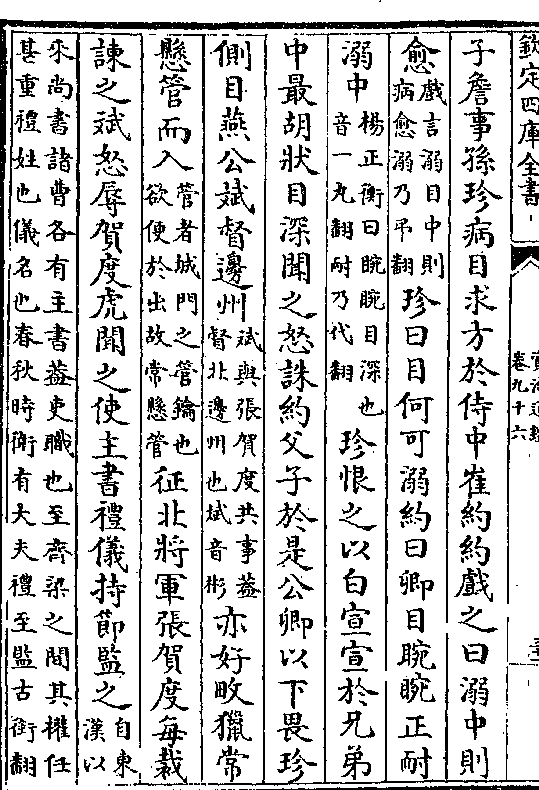 欽定四庫全書
資治通鑑
卷九十六
子詹事孫珍病目求方於侍中崔約約戲之曰溺中則
愈戲言溺目中則病愈溺乃弔翻珍曰目何可溺約曰卿目睕睕正耐
溺中楊正衡曰睕睕目深也音一丸翻耐乃代翻珍恨之以白宣宣於兄弟
中最胡狀目深聞之怒誅約父子於是公卿以下畏珍
側目燕公斌督邊州斌與張賀度共事蓋督北邊州也斌音彬亦好畋獵常
懸管而入管者城門之管鑰也欲便於出故常懸管征北將軍張賀度每裁
諫之斌怒辱賀度虎聞之使主書禮儀持節監之自東漢以
來尚書諸曹各有主書蓋吏職也至齊梁之間其權任甚重禮姓也儀名也春秋時衛有大夫禮至監古銜翻